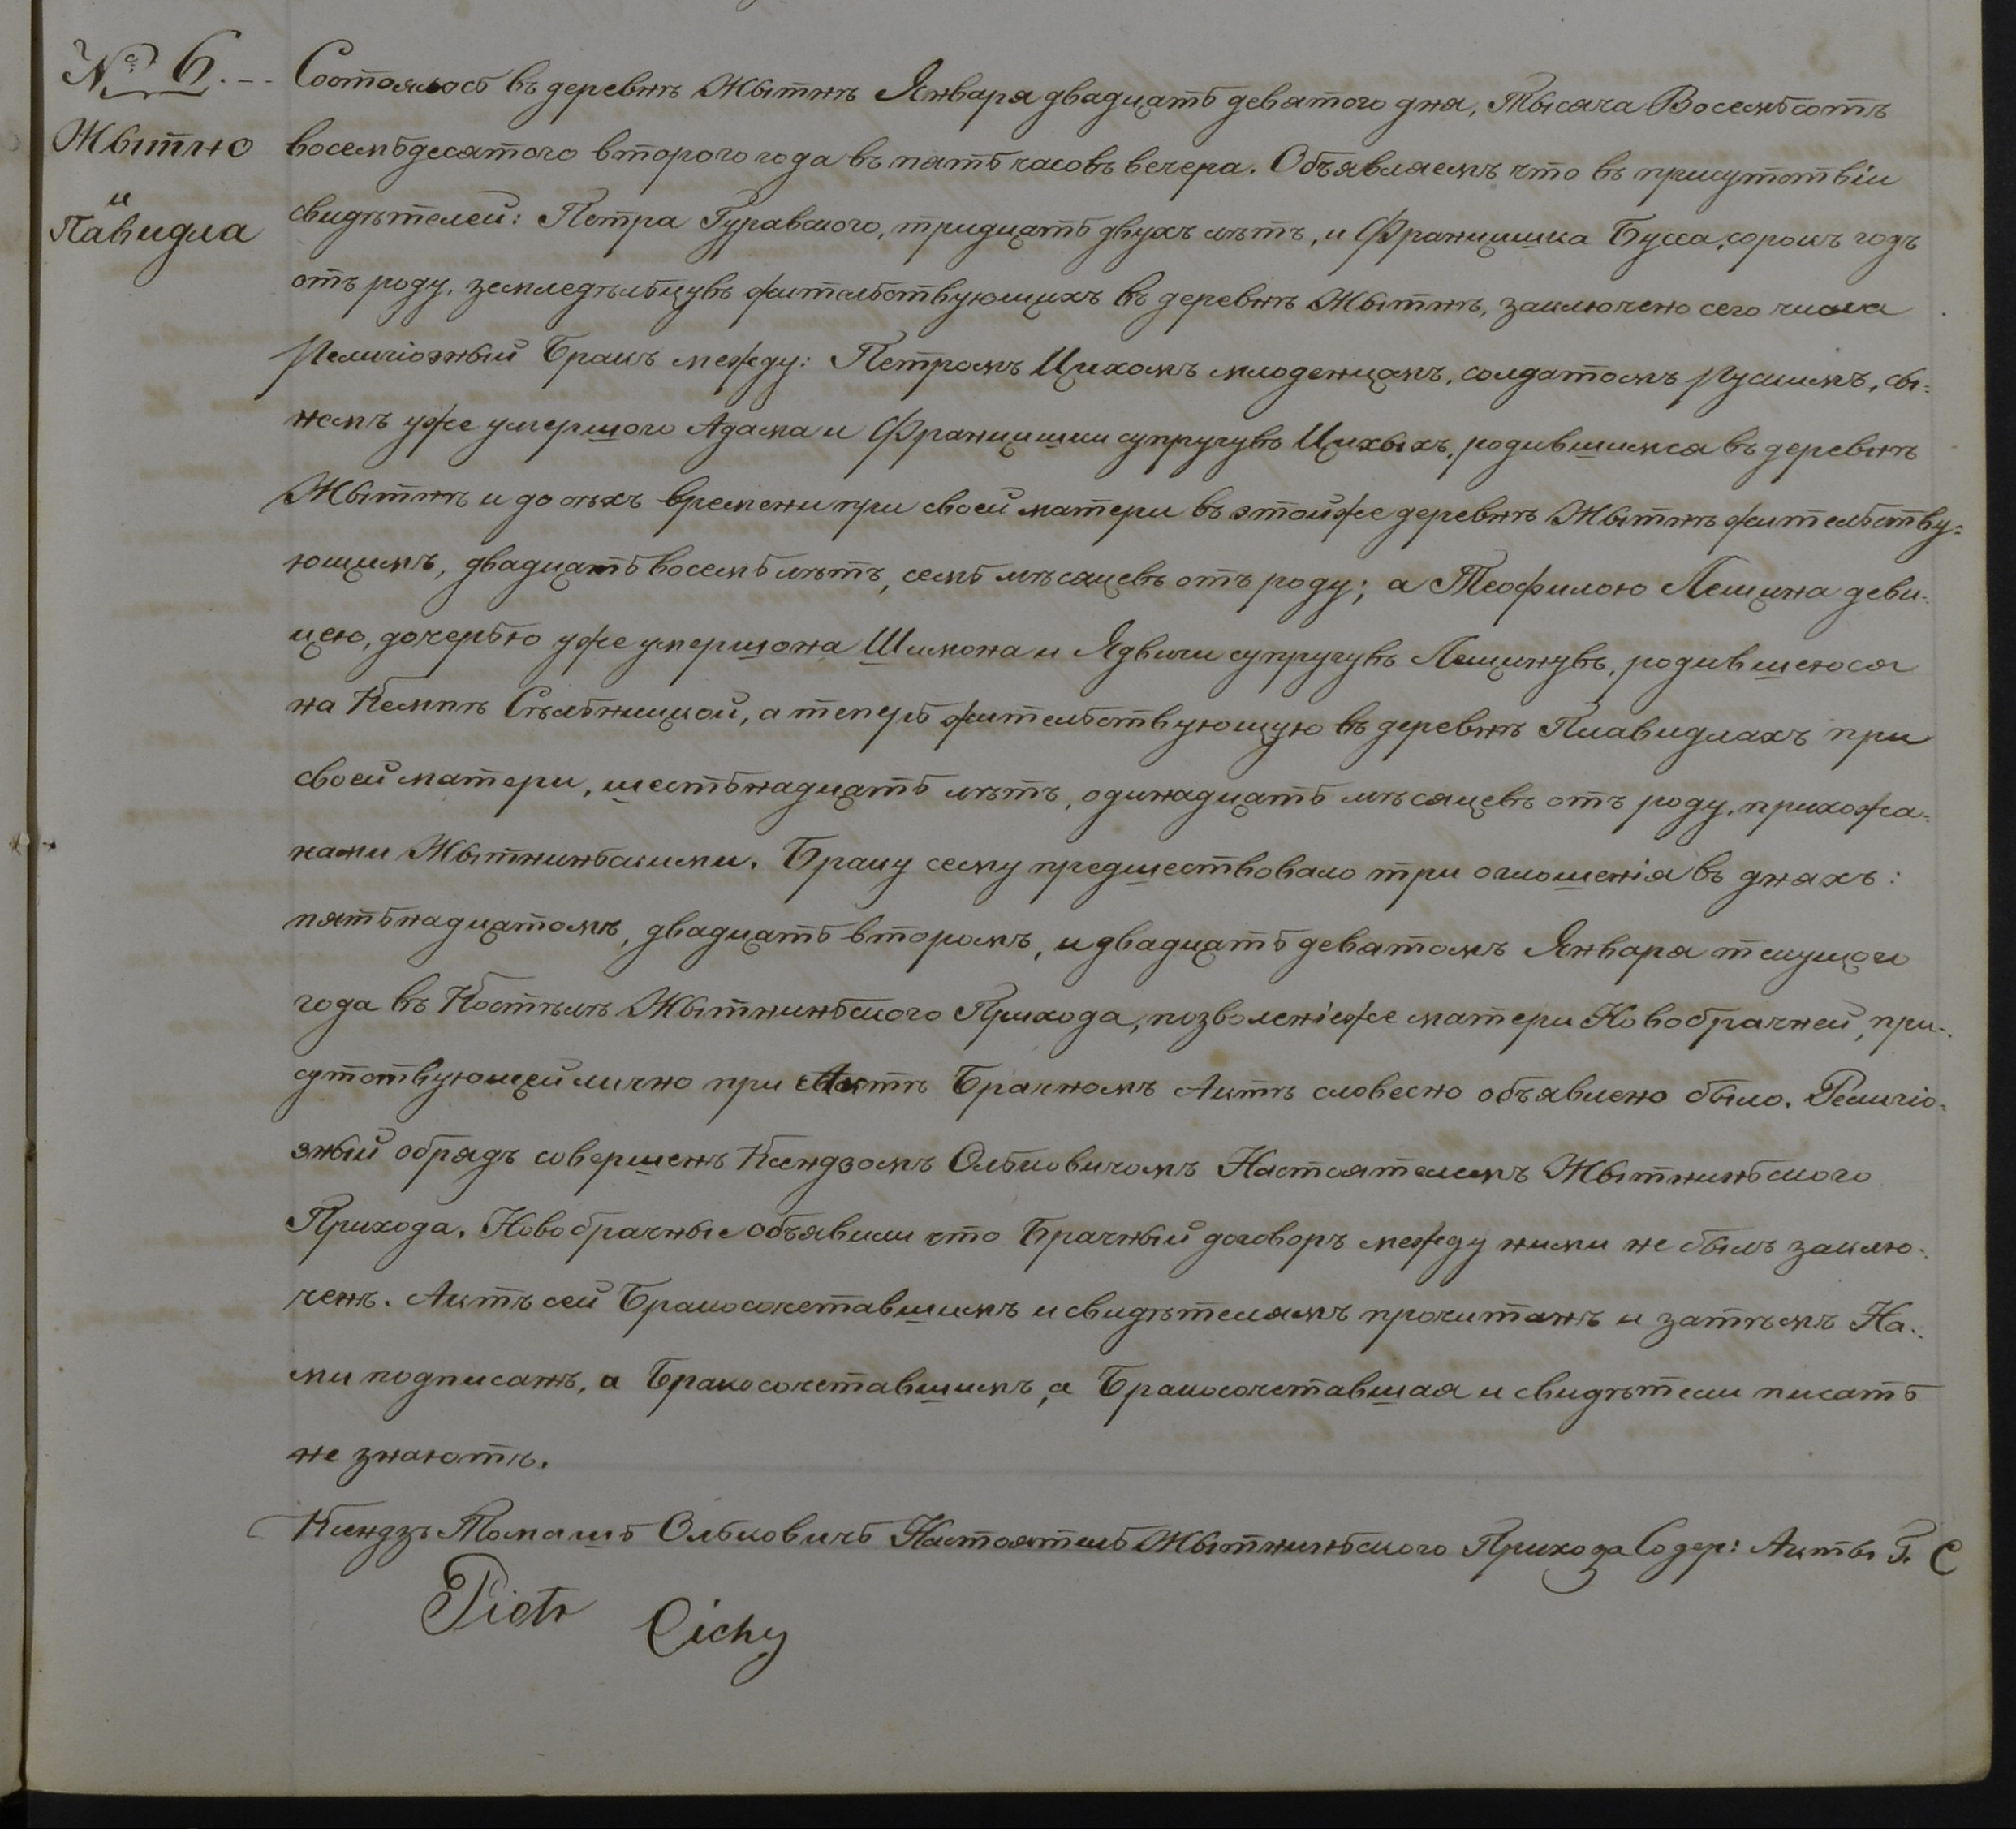 № 6.
Жытно
и
Павидла
Состоялось въ деревнѣ Жытнѣ Января двадцать девятого дня, Тысяча Восемьсотъ
восемьдесятого второго года въ пять часовъ вечера. Объявляемъ что въ присутствіи
свидѣтелей: Петра Гуравского, тридцать двухъ лѣтъ, и Францишка Бусса, сорокъ годъ
отъ роду, земледѣльцувъ жительствующихъ въ деревнѣ Жытнѣ, заключено сего числа
Религіозный Бракъ между: Петромъ Цихомъ млоденцемъ, солдатомъ рускимъ, сы-
немъ уже умершого Адама и Францишки супругувъ Цихыхъ, родившимся въ деревнѣ
Жытнѣ и до сихъ времени при своей матери въ этойже деревнѣ Жытнѣ жительству-
ющимъ, двадцать восемь лѣтъ, семь мѣсяцевъ отъ роду; а Теофилою Лещина деви-
цею, дочерью уже умершона Шимона и Ядвиги супругувъ Лещинувъ, родившеюся
на Кемпѣ Сѣльницкой, а теперь жительствующую въ деревнѣ Плавидлахъ при
своей матери, шестьнадцать лѣтъ, одинадцать мѣсяцевъ отъ роду, прихожа-
нами Жытниньскими. Браку сему предшествовало три оглошенія въ дняхъ:
пятьнадцатомъ, двадцать второмъ, и двадцать девятомъ Января текущого
года въ Костѣлѣ Жытниньского Прихода, позволеніеже матери Новобрачней, при-
сутствующей лично при Актѣ Брачномъ Актѣ словесно объявлено было. Религіо-
зный обрядъ совершенъ Ксендзомъ Ольковичомъ Настоятелемъ Жытниньского
Прихода. Новобрачные объявили что Брачный договоръ между ними не былъ заклю-
ченъ. Актъ сей Бракосочетавшимъ и свидѣтелямъ прочитанъ и затѣмъ На-
ми подписанъ, а Бракосочетавшимъ, а Бракосочетавшая и свидѣтели писать
не знаютъ.
Ксендзъ Томашъ Ольковичъ Настоятель Жытниньского Прихода Содер: Акты Г. С
Piotr Cichy